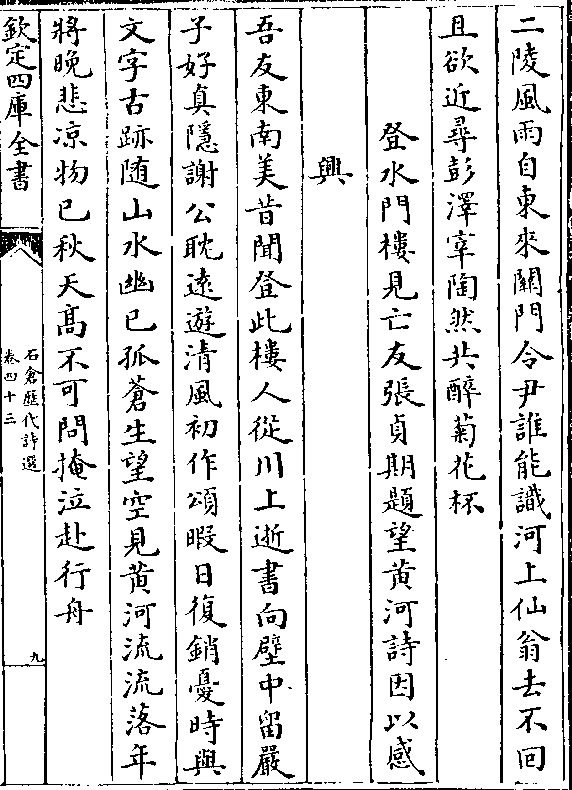 二陵風雨自東來關門令尹誰能識河上仙翁去不回
且欲近尋彭澤宰陶然共醉菊花杯
登水門樓見亡友張貞期題望黄河詩因以感
興
吾友東南美昔聞登此樓人從川上逝書向壁中留嚴
子好真隱謝公耽逺遊清風初作頌暇日復銷憂時與
文字古跡隨山水幽已孤蒼生望空見黄河流流落年
將晚悲凉物已秋天髙不可問掩泣赴行舟
欽定四庫全書
石倉歷代詩選
卷四十三
九